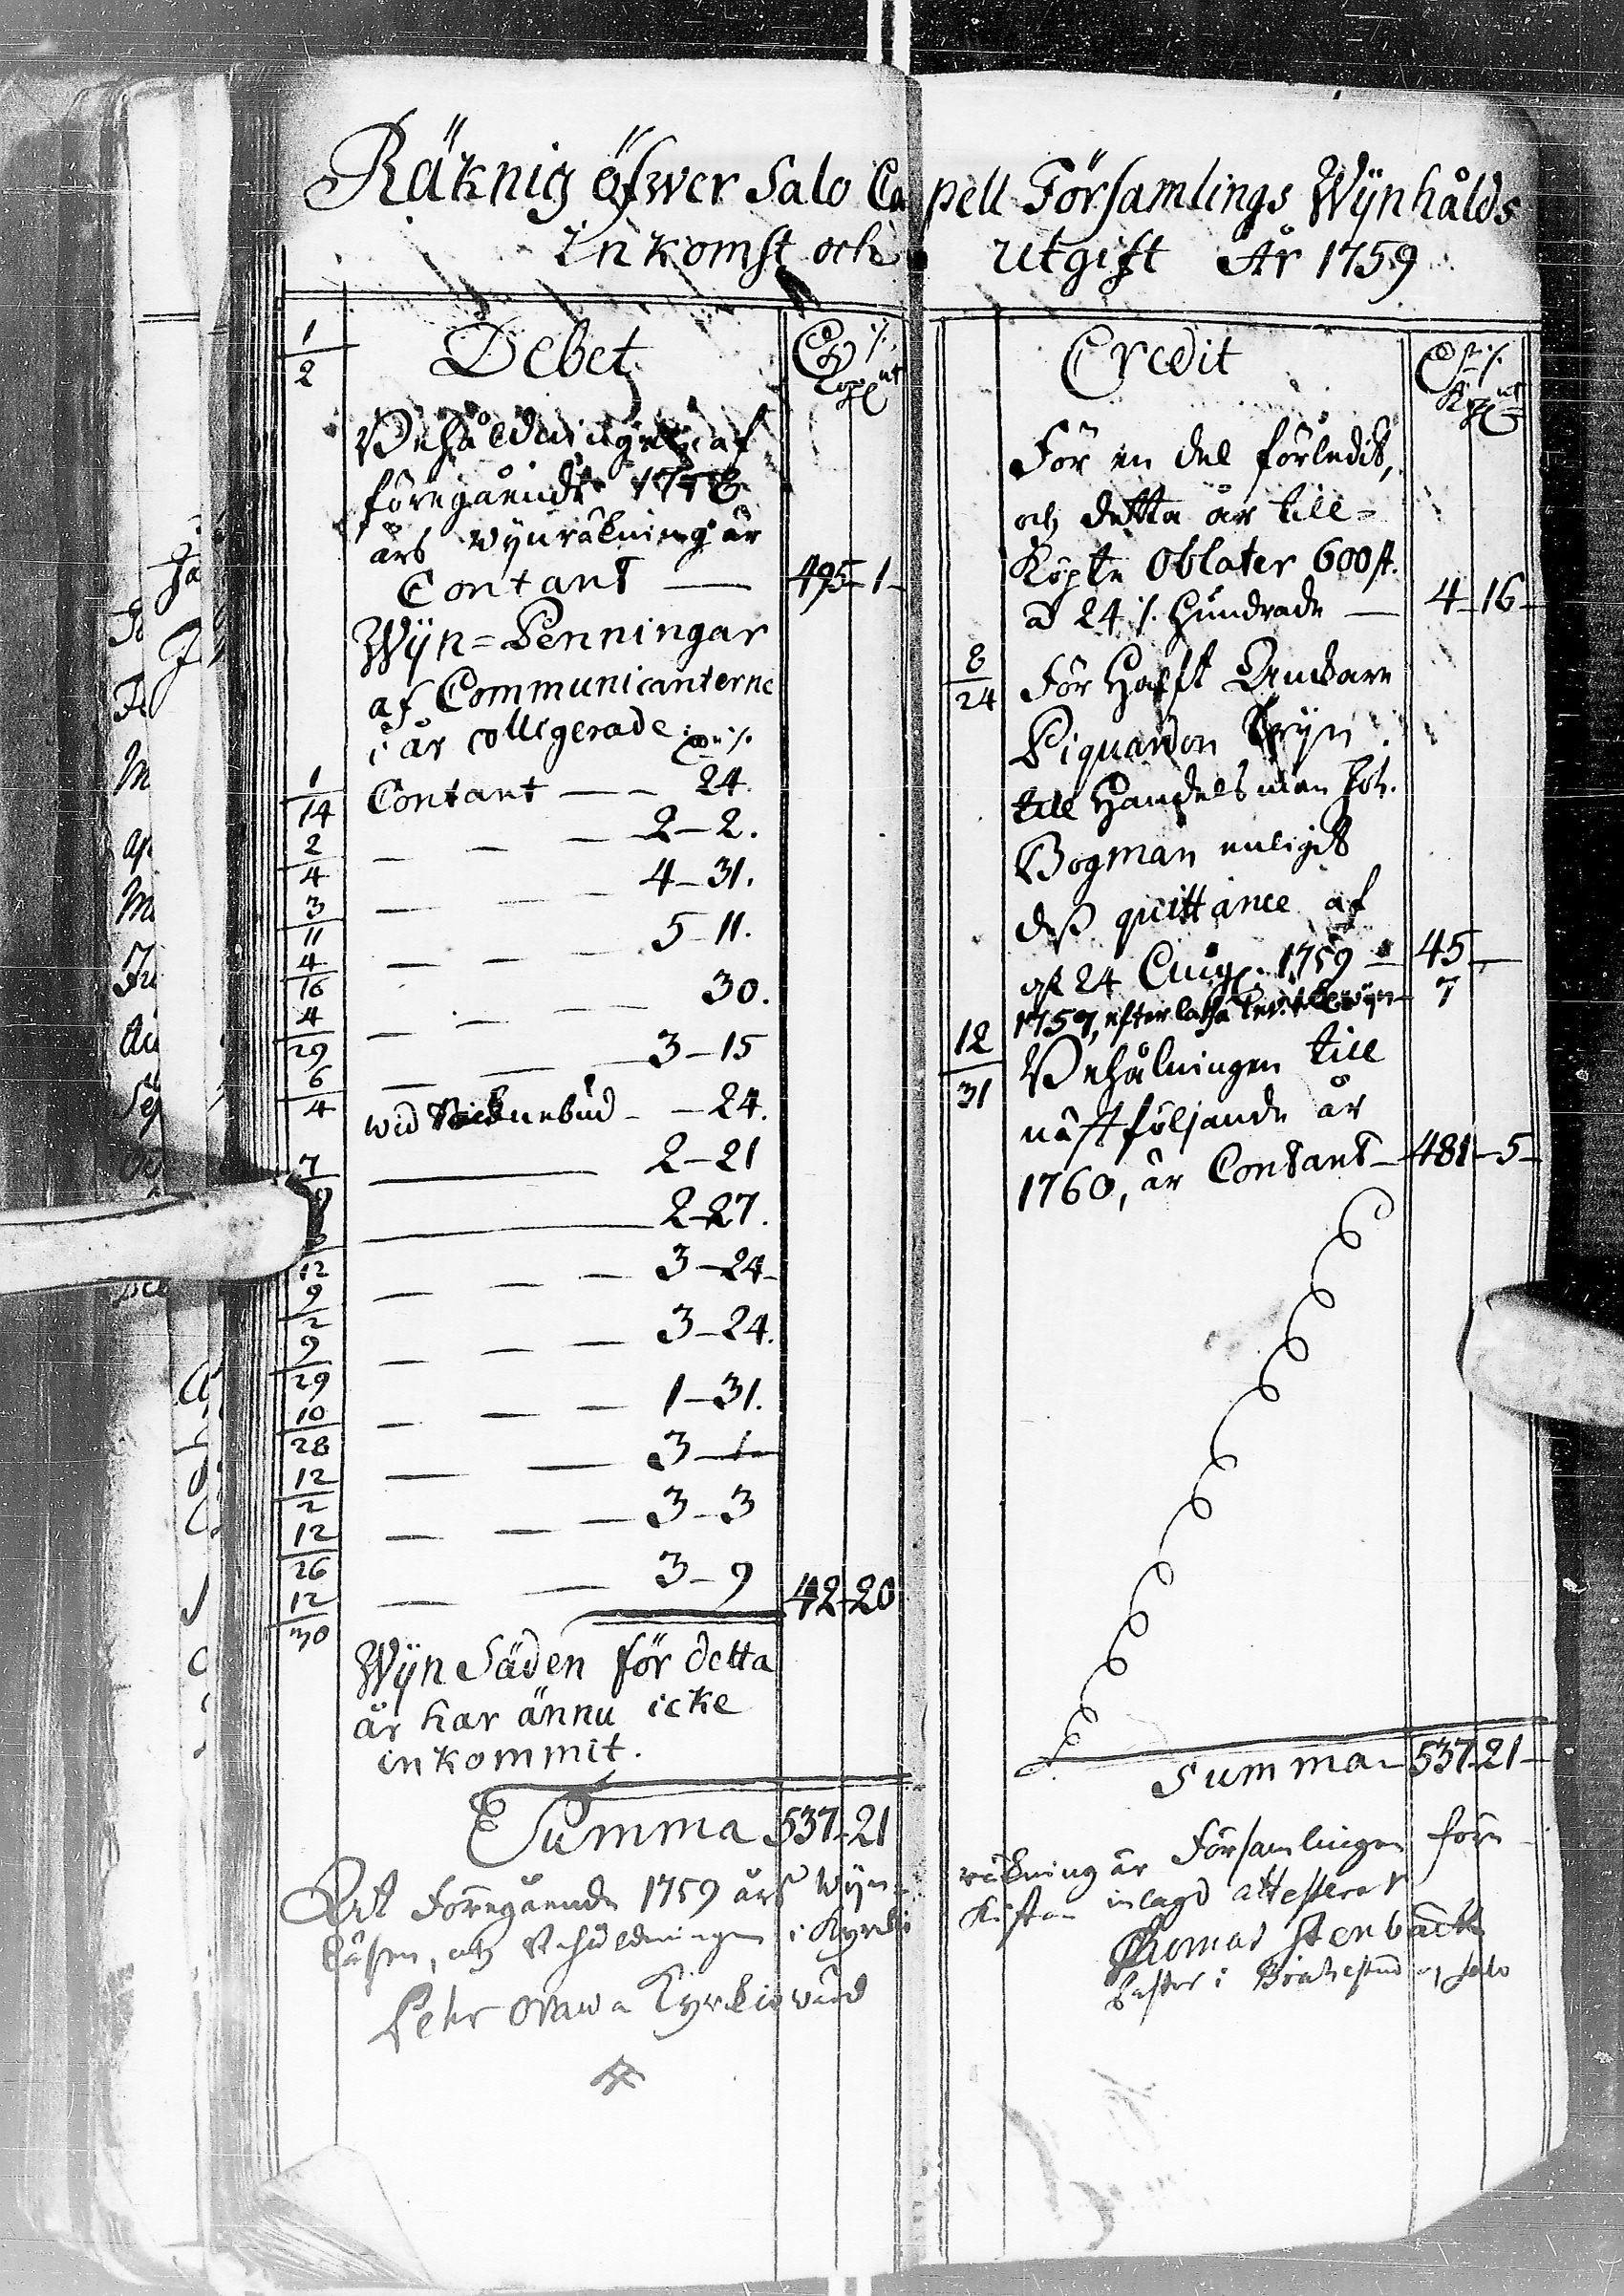 Räknig öfwer Salo Capell Församlings Wijnhålds
Inkomst och utgift År 1759
1/2 Debet
Behåldningen af
föregående 1758
års wijnräkning är
Contant — 495–1–
Wijn=Penningar
af Communicanterne
i år colligerade:
1/14 Contant — — 24.
2/4 — — — 2–2.
3/11 — — — 4–31.
4/16 — — — 5–11.
4/29 — — — 30.
6/4 — — — 3–15
wid Socknebud – — 24.
7 — 2–21
— 2–27.
12 — — — 3–24–
9/2 — — — 3–24.
9/29
10/28 — — — 1–31.
12/2 — — 3–1–
12/26 — — — 3–3
12/30 — — 3–9 42–20
Wijn Säden för detta
år har ännu icke
inkommit.
Summa 537–21
Credit
För en del förledit,
och detta år till=
Köpte Oblater 600 st.
a 24 :/. Hundrade — 4–16–
8/24 För Halft Anckare
Piquardon Wijn
till Handelsman Joh.
Bogman enligit
dess quittance af
d. 24 Aug. 1759 — 45–
1757, efterlåtna 7
12/31 Behålningen till
nästföljande år
1760, är Contant – 481–5–
Summa – 537–21–
Att Föregående 1759 års Wijn-räkning är Församlingen före
läsen, och Behåldningen i Kyrkio Kistan inlagd attesterar
Pehr Kyrkiowärd
Thomas Stenbäck
Pastor i Brahestad och Salo